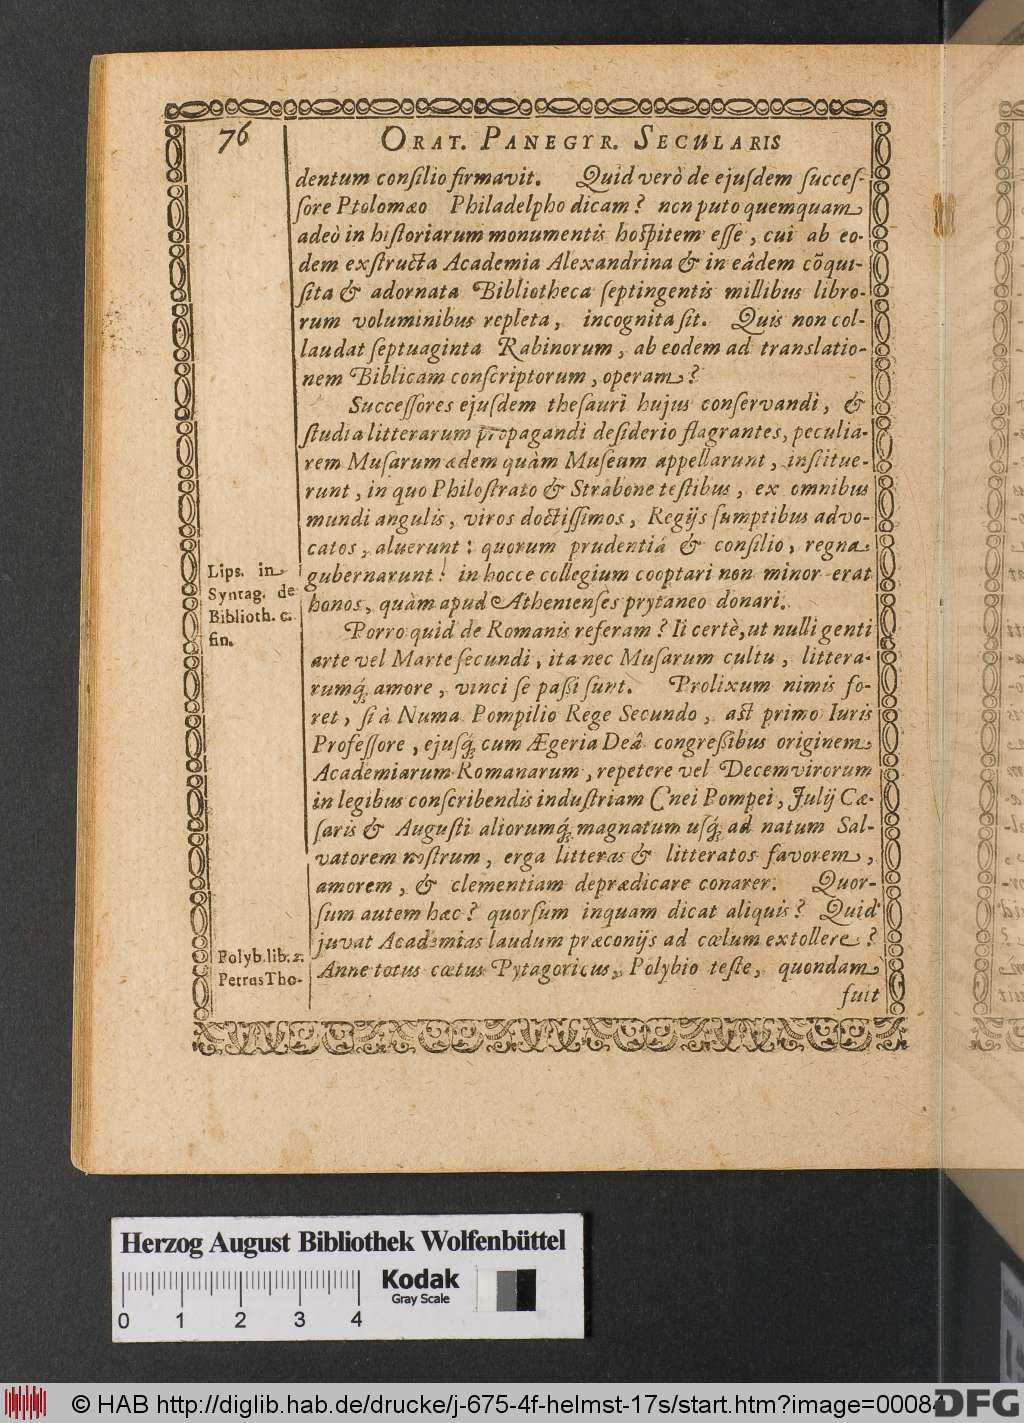 76
ORAT. PANEGYR. SECULARIS
dentum consilio firmavit. Quid verò de ejuſdem succeſ-
ſore Ptolomæo Philadelpho dicam? non puto quemquam
adeò in hiſtoriarum monumentis hoſpitem eſſe, cui ab eo-
dem exſtructa Academia Alexandrina & in eâdem cõqui-
ſita & adornata Bibliotheca ſeptingentis millibus libro-
rum voluminibus repleta, incognita ſit. Quis non col-
laudat ſeptuaginta Rabinorum, ab eodem ad translatio-
nem Biblicam conſcriptorum, operam?
Succeſſores ejuſdem theſauri hujus conſervandi, &
ſtudia litterarum propagandi deſiderio flagrantes, peculia-
rem Muſarum ædem quàm Muſeum appellarunt, inſtitue-
runt, in quo Philoſtrato & Strabone teſtibus, ex omnibus
mundi angulis, viros doctiſſimos, Regijs ſumptibus advo-
catos, aluerunt: quorum prudentiâ & conſilio, regna
gubernarunt! in hocce collegium cooptari non minor erat
honos, quàm apud Athenienſes prytaneo donari.
Lips. in
Syntag. de
Biblioth. c.
fin.
Porro quid de Romanis referam? Ii certè, ut nulli genti
arte vel Marte ſecundi, ita nec Muſarum cultu, littera-
rumq́ amore, vinci ſe paßi ſunt. Prolixum nimis fo-
ret, ſi à Numa Pompilio Rege Secundo, aſt primo Iuris
Profeſſore, ejuſq́ cum Ægeria Deâ congreßibus originem
Academiarum Romanarum, repetere vel Decemvirorum
in legibus conſcribendis induſtriam Cnei Pompei, Julij Cæ-
ſaris & Auguſti aliorumq́ magnatum uſq́ ad natum Sal-
vatorem noſtrum, erga litteras & litteratos favorem,
amorem, & clementiam deprædicare conarer. Quor-
ſum autem hæc? quorſum inquam dicat aliquis? Quid
juvat Academias laudum præconijs ad cœlum extollere?
Anne totus cœtus Pytagoricus, Polybio teſte, quondam
Polyb. lib. 2.
Petrus Tho-
fuit
Herzog August Bibliothek Wolfenbüttel
0 1 2 3 4
Kodak
Gray Scale
© HAB http://diglib.hab.de/drucke/j-675-4f-helmst-17s/start.htm?image=00084
DFG